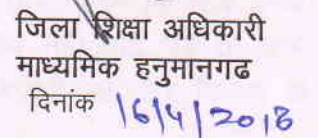 जिला शिक्षा अधिकारी
माध्यमिक हनुमानगढ
दिनांक 16/4/2018